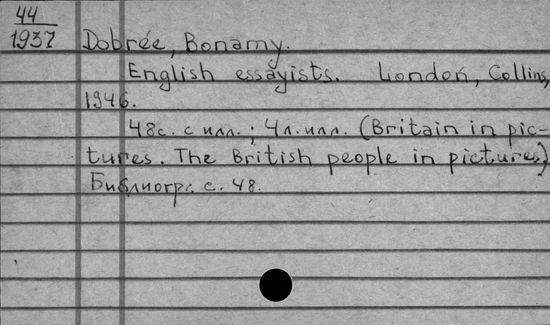 44
1937
Dobrée, Bonamy.
English essayists. London, Collins,
1946.
48с. с илл.; 4л. илл. (Britain in pic-
tures. The British people in pictures)
Библиогр. с. 48.